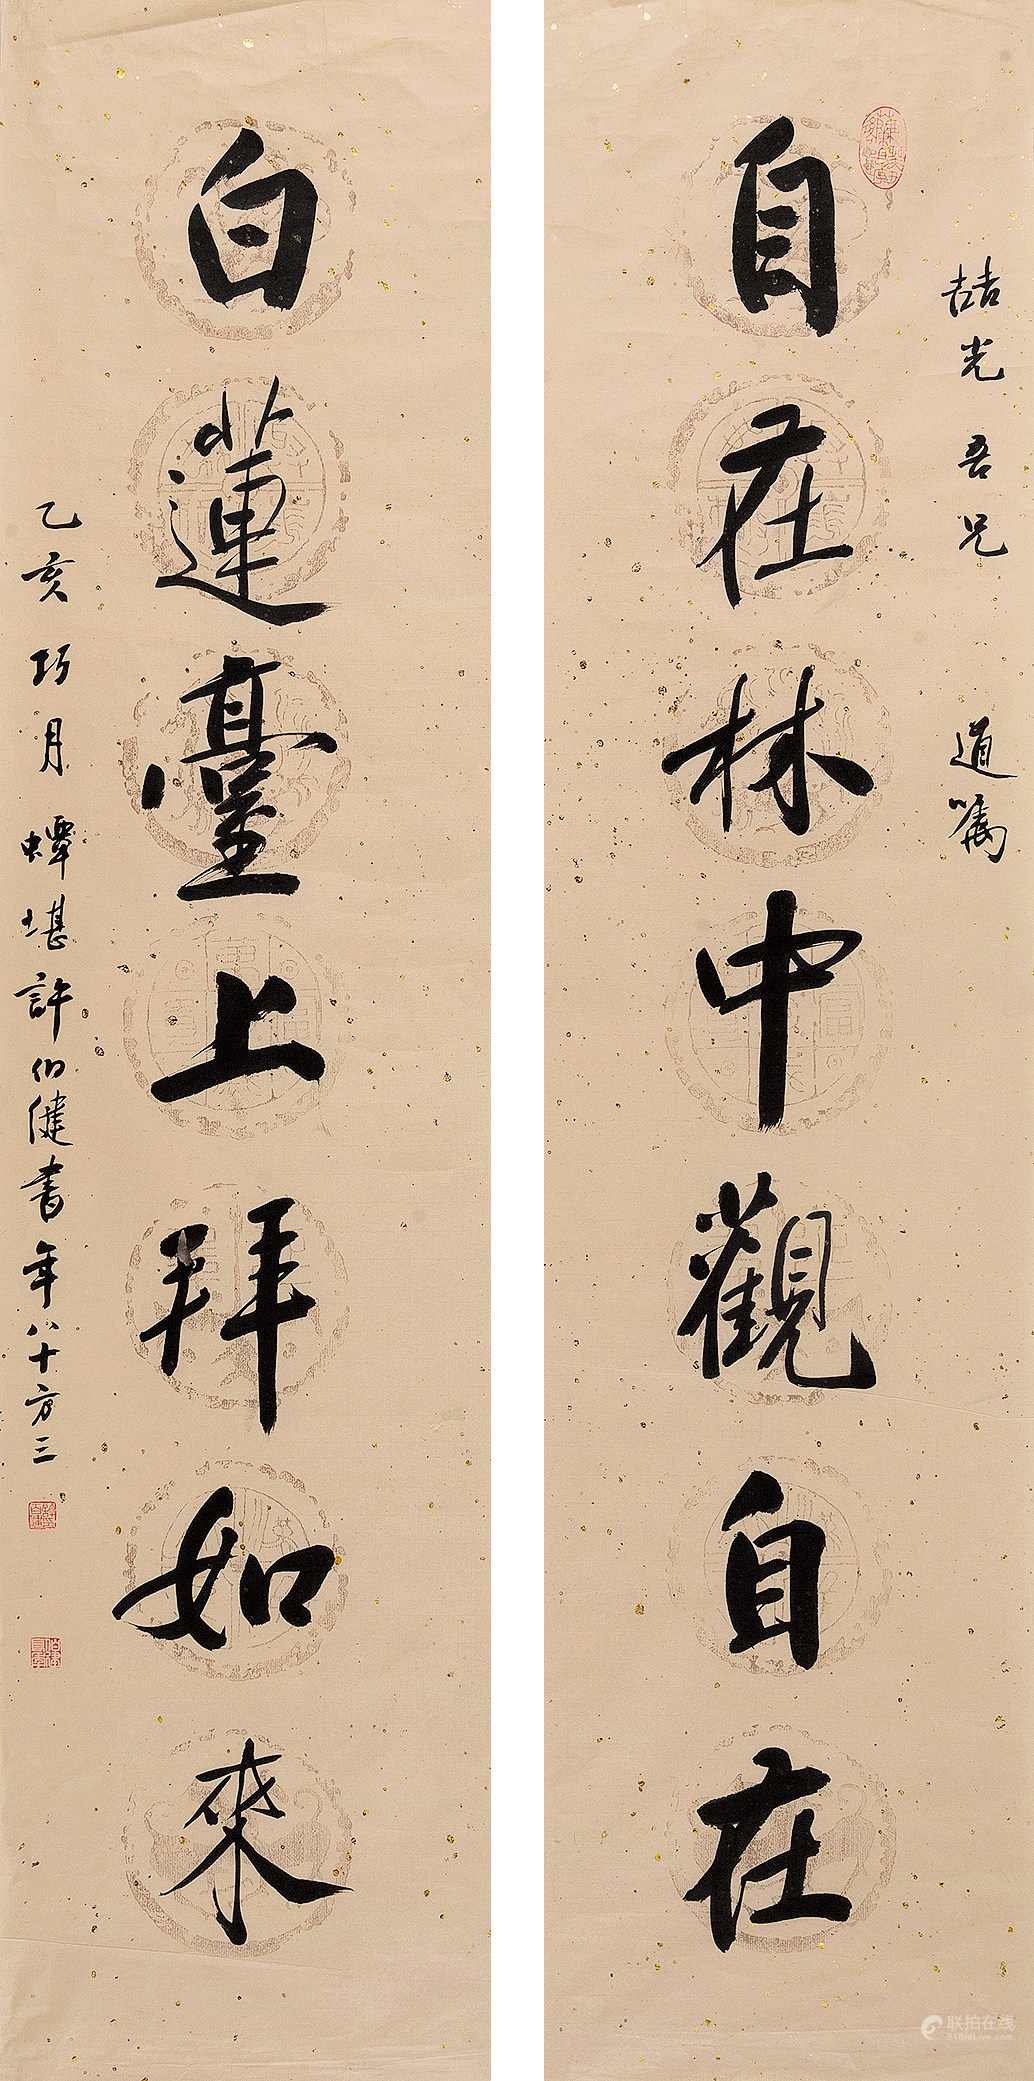 喆光吾兄 道嘱
自在林中觀自在
白蓮臺上拜如來
乙亥巧月蟫堪許伯健書年八十方三
联拍在线
51BidLive.com